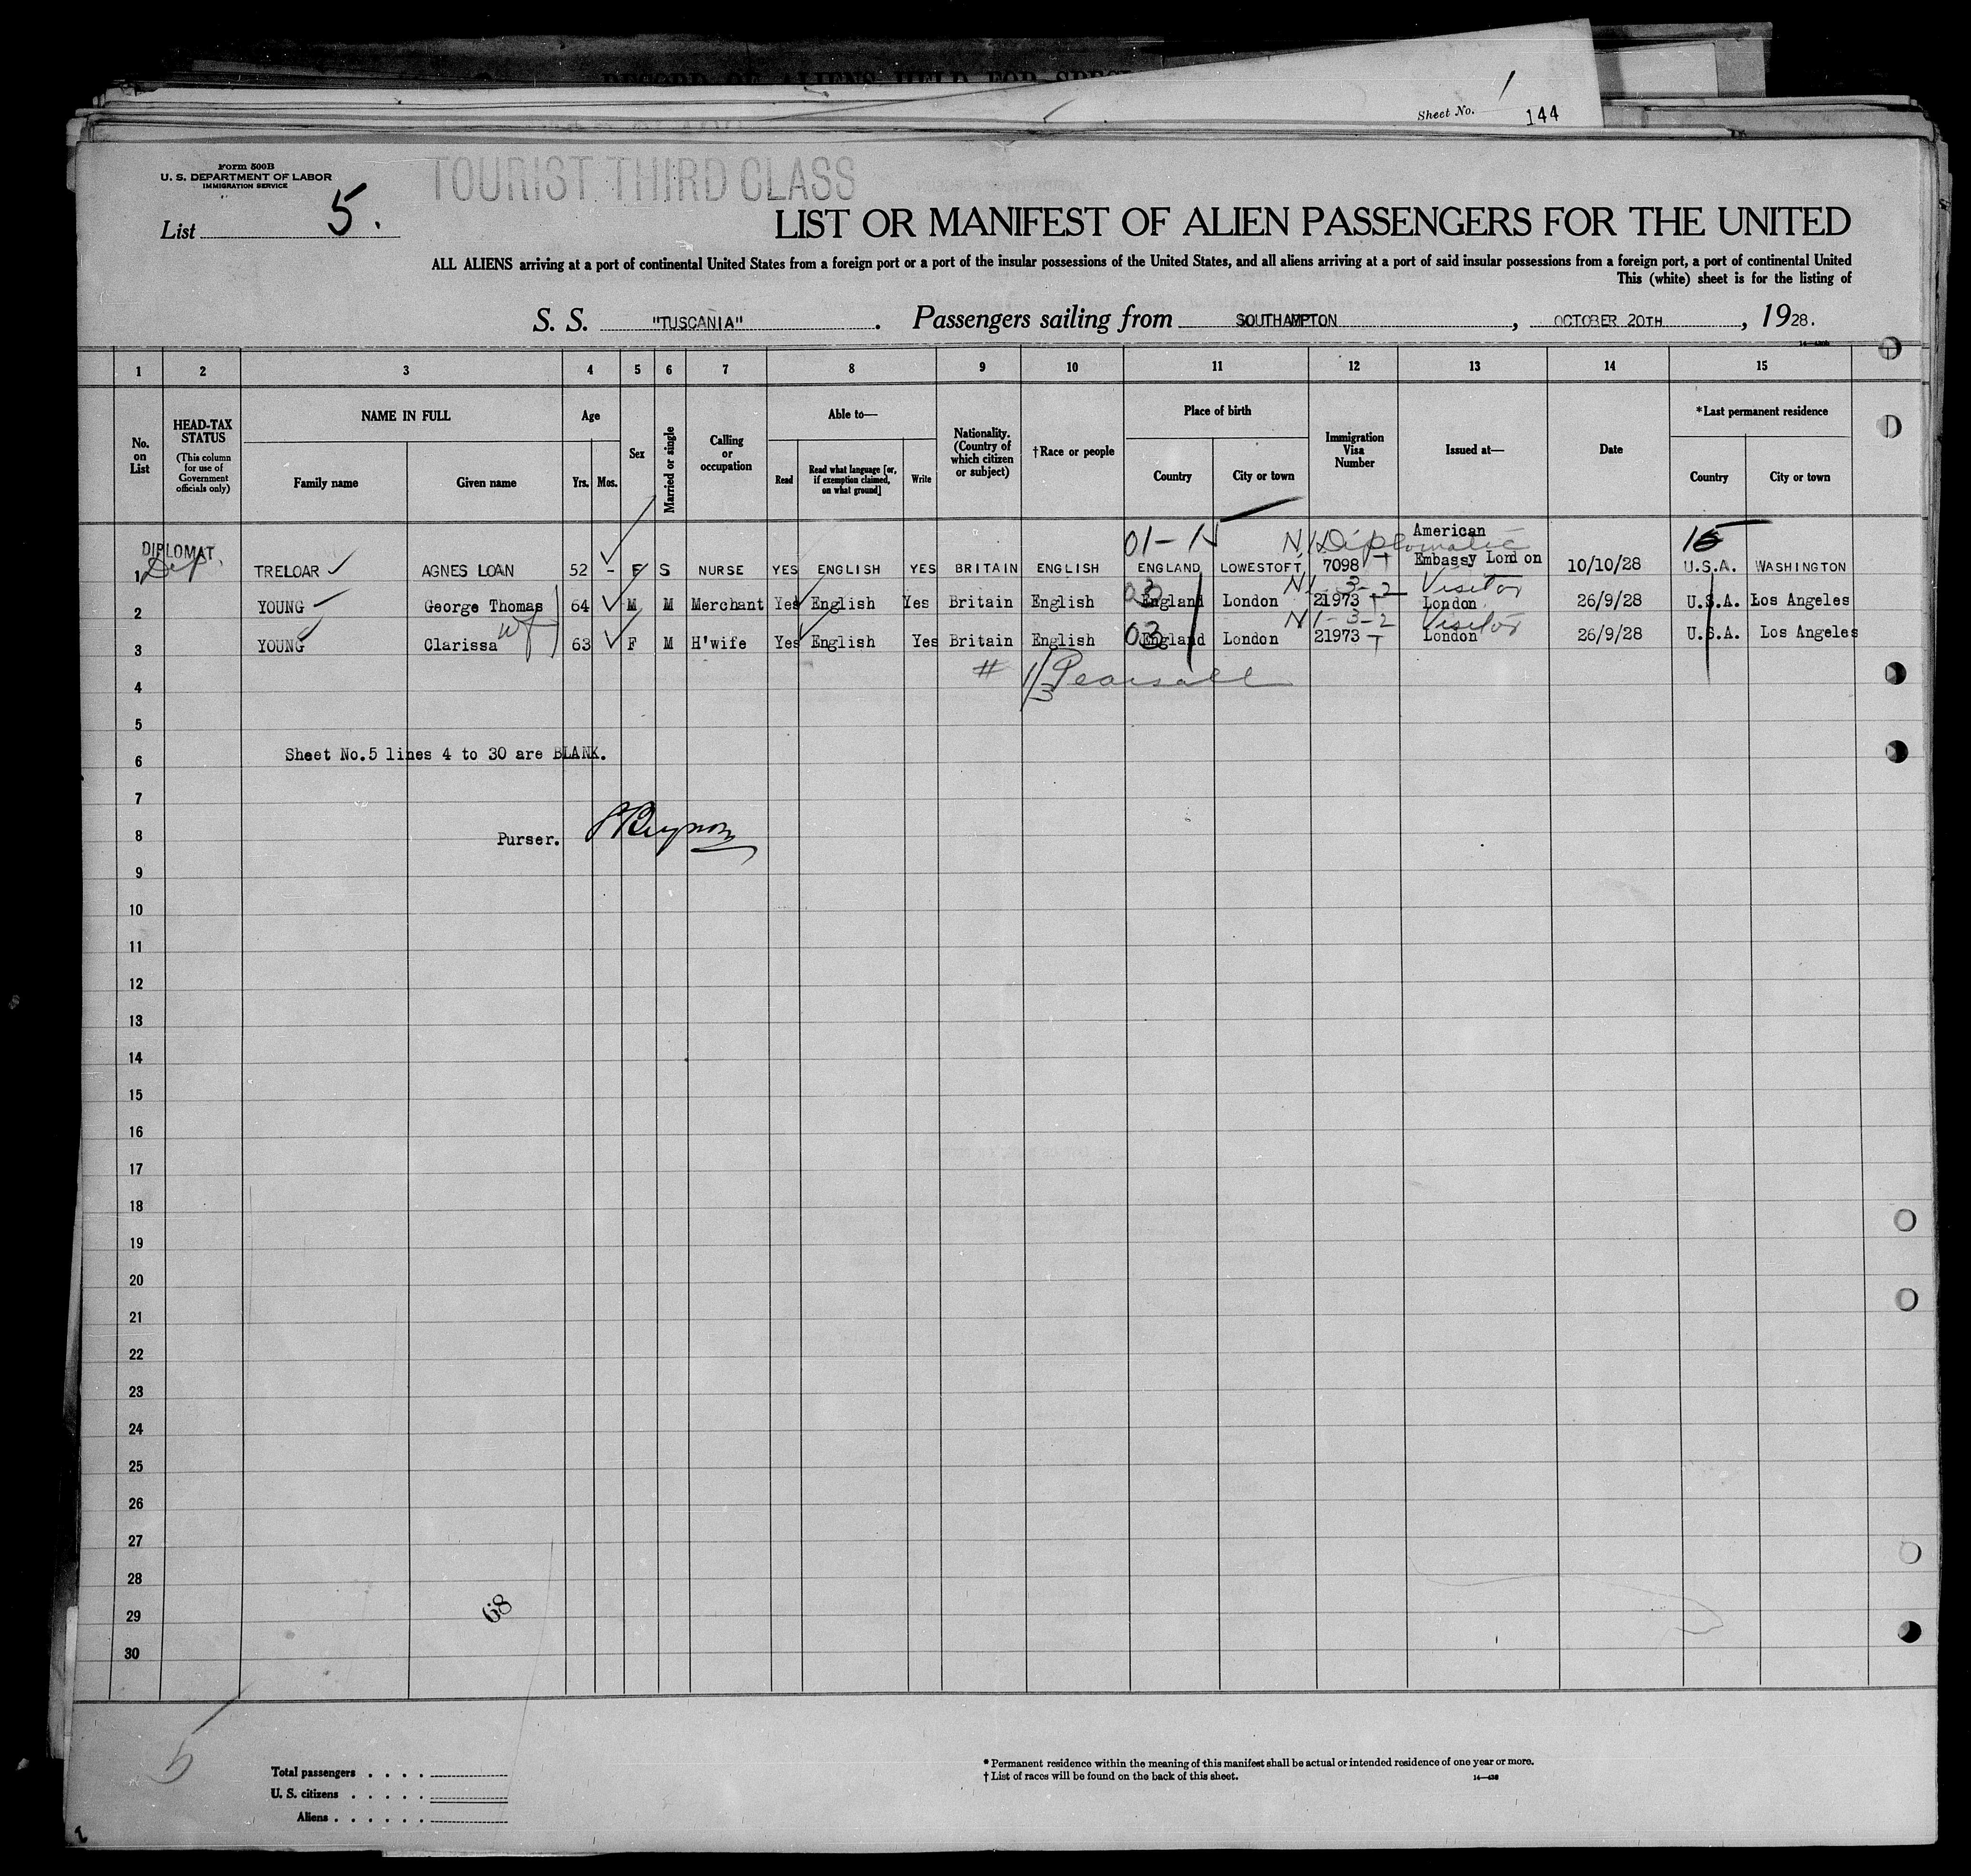 RECORD OF ALIENS HELD FOR SPEC
Sheet No. 1
144
Form 500B
U. S. DEPARTMENT OF LABOR
IMMIGRATION SERVICE
TOURIST THIRD CLASS
List 5.
LIST OR MANIFEST OF ALIEN PASSENGERS FOR THE UNITED
ALL ALIENS arriving at a port of continental United States from a foreign port or a port of the insular possessions of the United States, and all aliens arriving at a port of said insular possessions from a foreign port, a port of continental United
This (white) sheet is for the listing of
S. S. "TUSCANIA". Passengers sailing from SOUTHAMPTON, OCTOBER 20TH, 1928.
1 2 3 4 5 6 7 8 9 10 11 12 13 14 15
No. on List
HEAD-TAX STATUS (This column for use of Government officials only)
NAME IN FULL
Family name Given name
Age
Yrs. Mos.
Sex
Married or single
Calling or occupation
Able to—
Read Read what language [or, if exemption claimed, on what ground] Write
Nationality. (Country of which citizen or subject)
†Race or people
Place of birth
Country City or town
Immigration Visa Number
Issued at—
Date
*Last permanent residence
Country City or town
DIPLOMAT 01-15 Diplomatic American 15
Dip.
1 TRELOAR AGNES LOAN 52 - F S NURSE YES ENGLISH YES BRITAIN ENGLISH ENGLAND LOWESTOFT 7098 Embassy London 10/10/28 U.S.A. WASHINGTON
03 N1-3-2 Visitor
2 YOUNG George Thomas 64 M M Merchant Yes English Yes Britain English England London 21973 London 26/9/28 U.S.A. Los Angeles
wf 03 N1-3-2 Visitor
3 YOUNG Clarissa 63 F M H'wife Yes English Yes Britain English England London 21973 London 26/9/28 U.S.A. Los Angeles
# 1/3 Pearsall
4
5
Sheet No.5 lines 4 to 30 are BLANK.
6
7
8 Purser.
9
10
11
12
13
14
15
16
17
18
19
20
21
22
23
24
25
26
27
28
68
29
30
5
Total passengers . . . .
U. S. citizens . . . . .
Aliens . . . . . .
* Permanent residence within the meaning of this manifest shall be actual or intended residence of one year or more.
† List of races will be found on the back of this sheet.